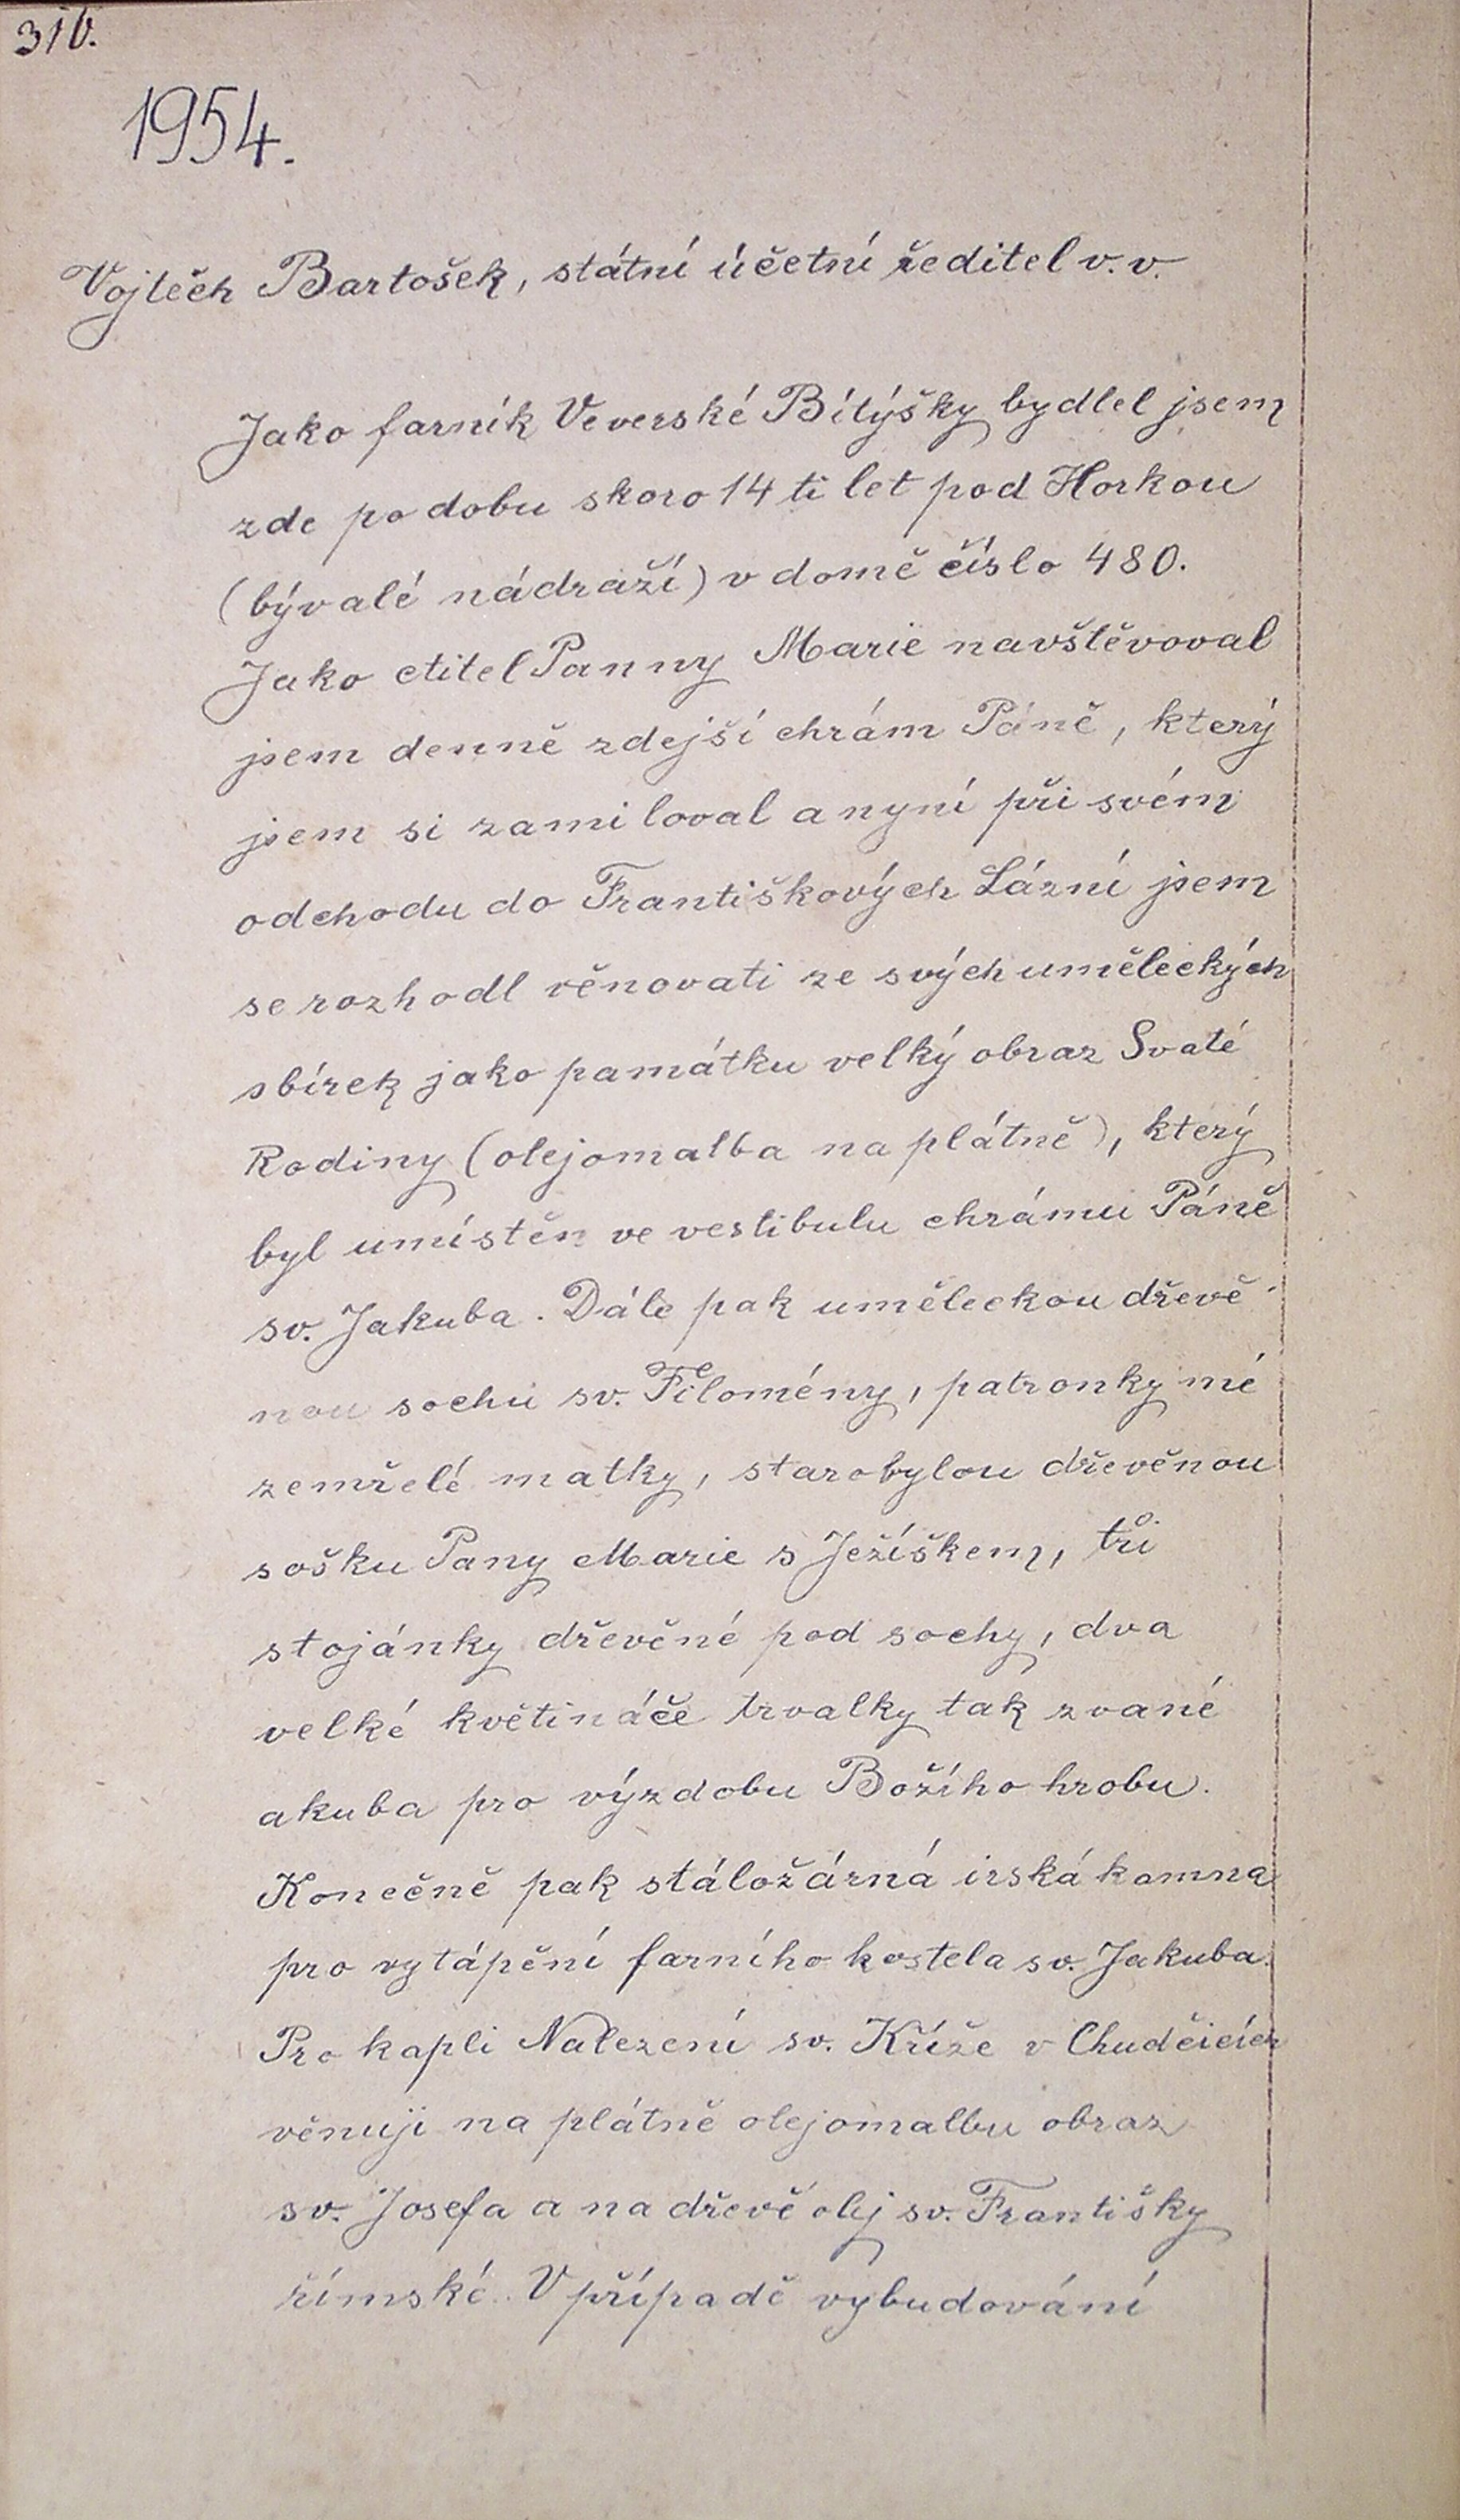 310.
1954.
Vojtěch Bartošek, státní účetní ředitel v. v.
Jako farník Veverské Bítýšky bydlel jsem
zde po dobu skoro 14 ti let pod Horkou
(bývalé nádraží) v domě číslo 480.
Jako ctitel Panny Marie navštěvoval
jsem denně zdejší chrám Páně, který
jsem si zamiloval a nyní při svém
odchodu do Františkových Lázní jsem
se rozhodl věnovati ze svých uměleckých
sbírek jako památku velký obraz Svaté
Rodiny (olejomalba na plátně), který
byl umístěn ve vestibulu chrámu Páně
sv. Jakuba. Dále pak uměleckou dřevě-
nou sochu sv. Filomény, patronky mé
zemřelé matky, starobylou dřevěnou
sošku Pany Marie s Ježíškem, tři
stojánky dřevěné pod sochy, dva
velké květináče trvalky tak zvané
akuba pro výzdobu Božího hrobu.
Konečně pak stáložárná irská kamna
pro vytápění farního kostela sv. Jakuba.
Pro kapli Nalezení sv. Kříže v Chudčicích
věnuji na plátně olejomalbu obraz
sv. Josefa a na dřevě olej sv. Františky
římské. V případě vybudování